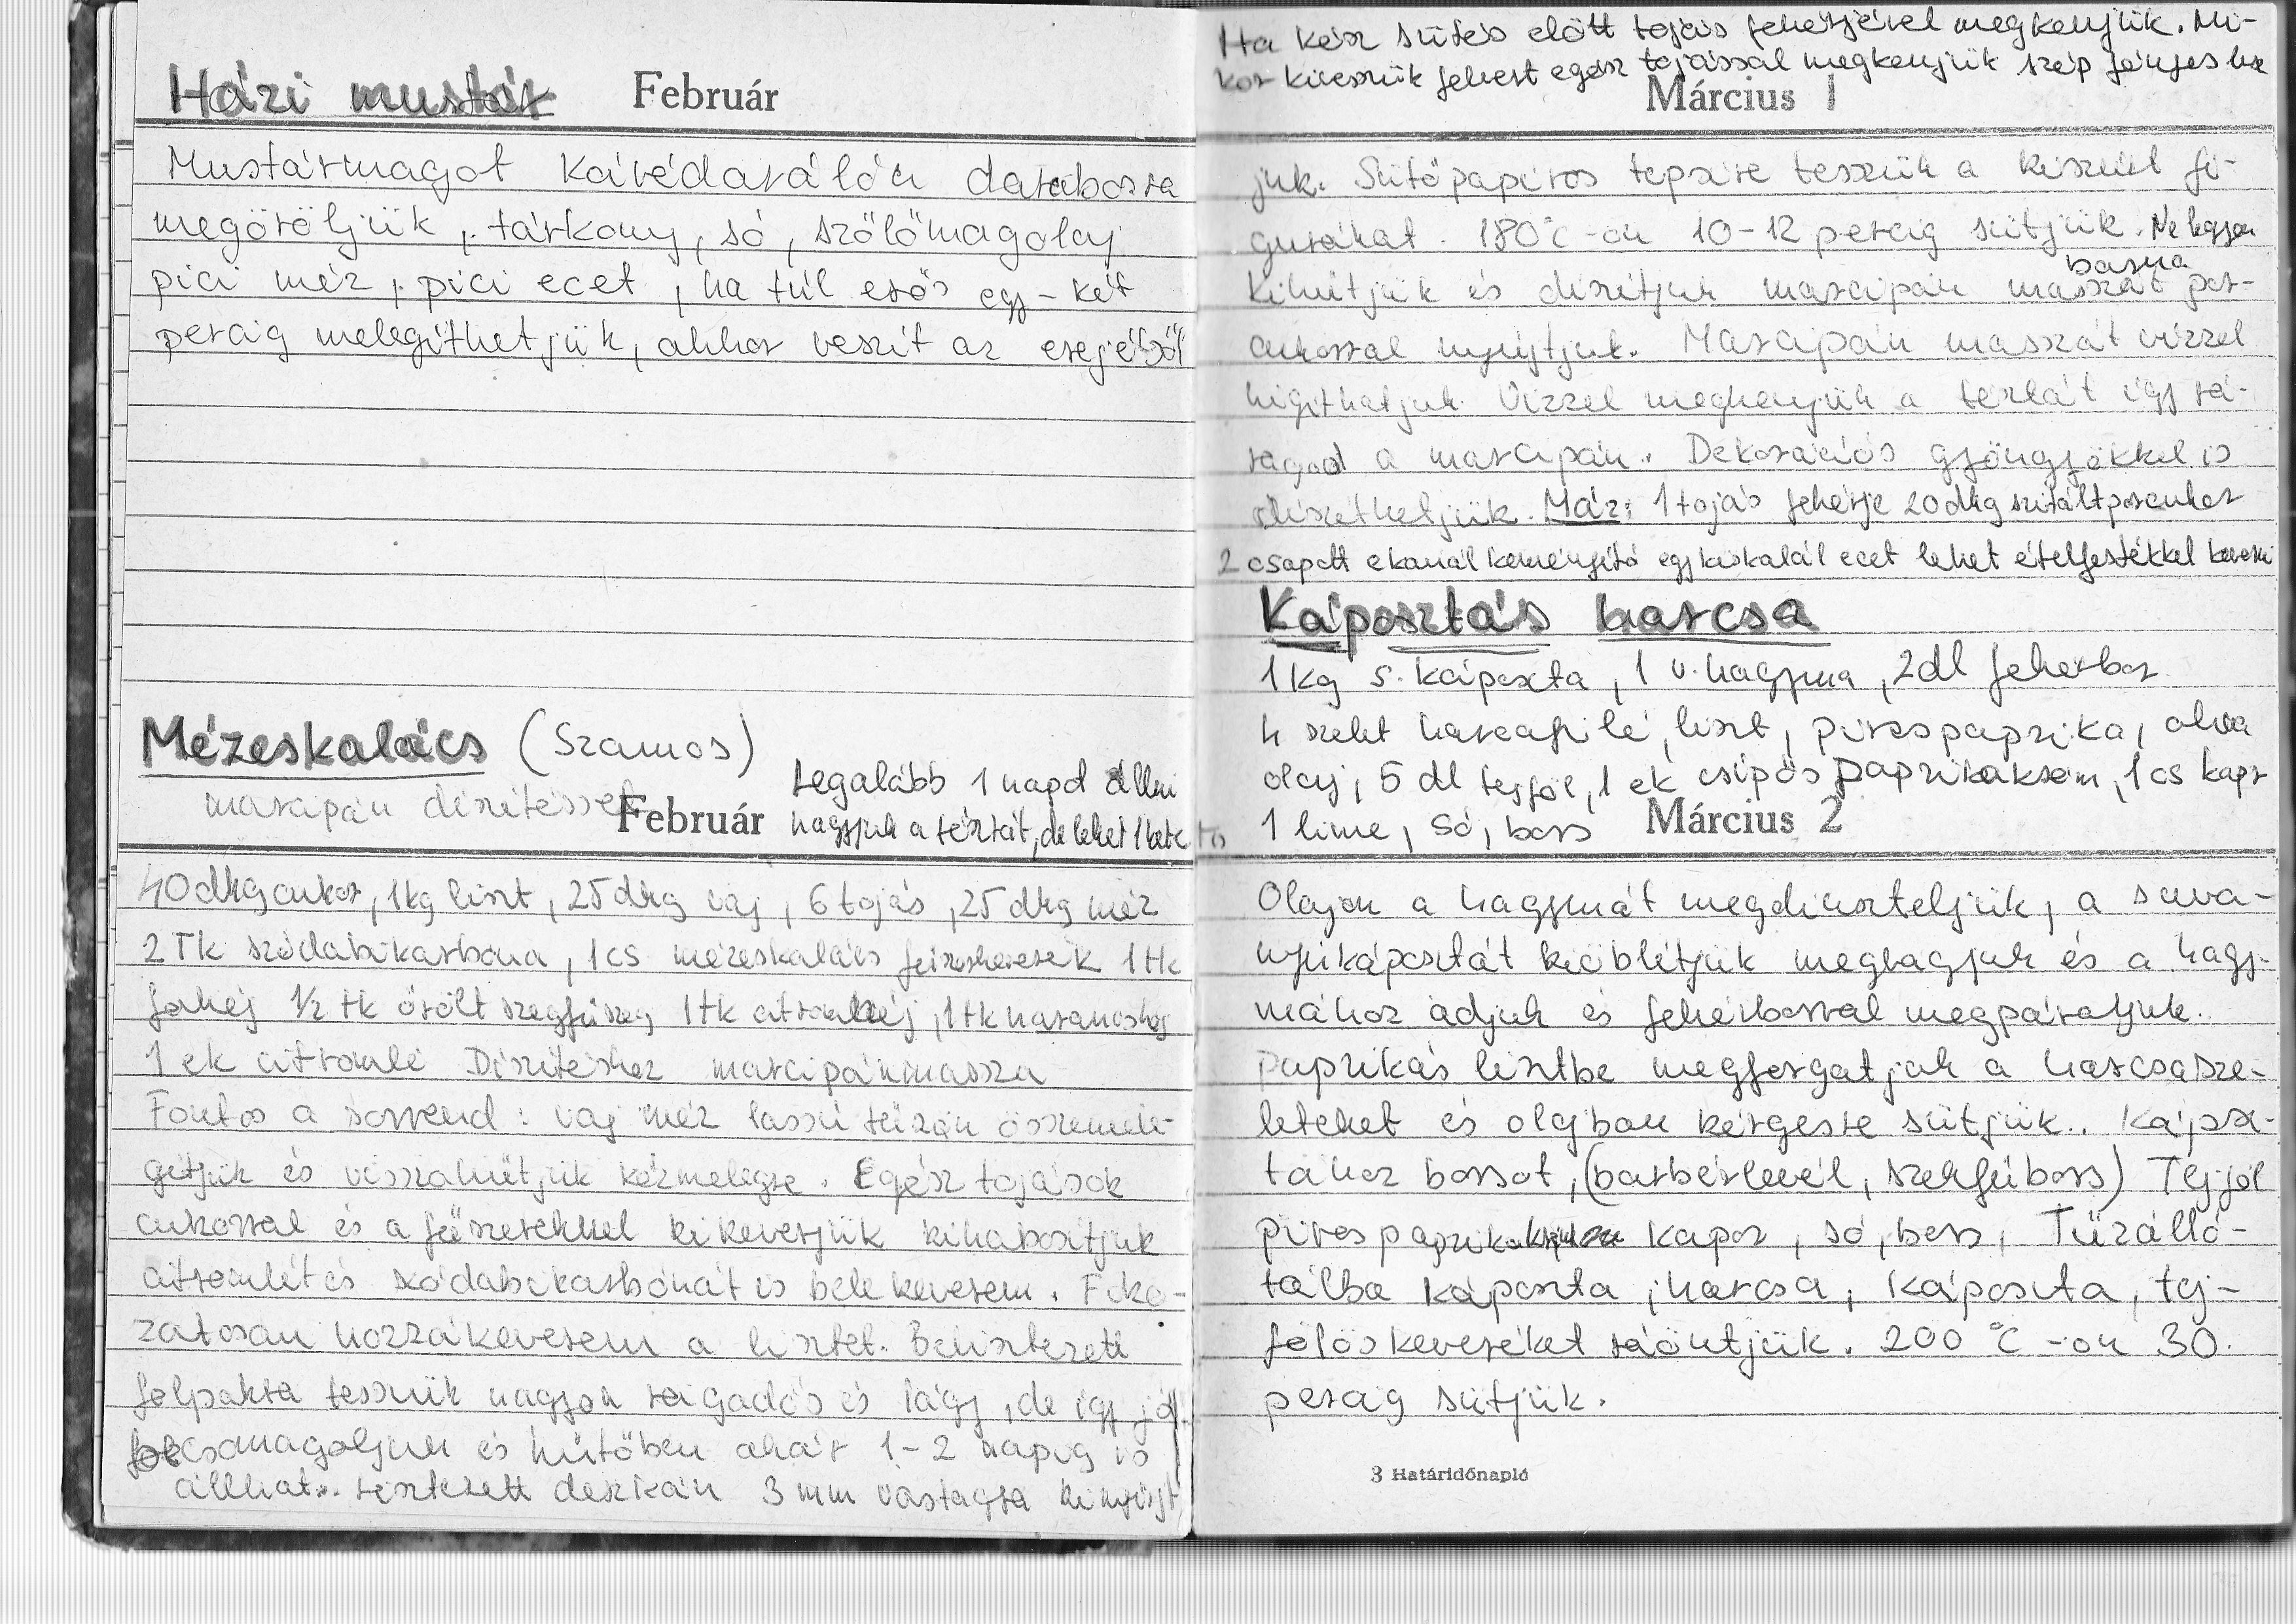 Házi mustár Február
Mustármagot kávédarálón darabosra
megöröljük, tárkony, só, szőlőmagolaj
pici méz, pici ecet, ha túl erős egy-két
percig melegíthetjük, akkor veszít az erejéből
Mézeskalács (Szamos)
marcipán díszítéssel
Február
Legalább 1 napot állni
hagyjuk a tésztát, de lehet 1 hete
40 dkg cukor, 1kg liszt, 25 dkg vaj, 6 tojás, 25 dkg méz
2 Tk szódabikarbóna, 1 cs mézeskalács fűszerkeverék 1 tk
fahéj 1/2 tk őrölt szegfűszeg 1tk citromhéj, 1 tk narancshéj
1 ek citromlé Díszítéshez marcipánmassza
Fontos a sorrend: vaj méz lassú tűzön összemele-
gítjük és visszahűtjük kézmelegre. Egész tojások
cukorral és a fűszerekkel kikeverjük kihabosítjuk
citromlét és szódabikarbónát is bele keverem. Foko-
zatosan hozzákeverem a lisztet. Belisztezett
folpakra tesszük nagyon ragadós és lágy, de így jó.
becsomagoljuk és hűtőben akár 1-2 napig is
állhat. Lisztezett deszkán 3 mm vastagra kinyújt
Ha kész sütés előtt tojás fehérjével megkenjük. Mi-
kor kivesszük fehért egész tojással megkenjük szép fényes lesz
Március 1
juk. Sütőpapíros tepsire tesszük a kiszúrt fi-
gurákat. 180°C-on 10-12 percig sütjük. Ne legyen
barna
Kihűtjük és díszítjük marcipán masszát por-
cukorral nyújtjuk. Marcipán masszát vízzel
higíthatjuk. Vízzel megkenjük a tésztát így rá-
ragad a marcipán. Dekorációs gyöngyökkel is
díszíthetjük. Máz: 1 tojás fehérje 20 dkg szitált porcukor
2 csapott ekanál keményítő egy kiskalál ecet lehet ételfestékkel keverni
Káposztás harcsa
1 kg s. káposzta, 1 v. hagyma, 2dl fehérbor
4 szelet harcsafilé, liszt, pirospaprika, oliva
olaj, 5 dl tejföl, 1 ek csípős paprikakrém, 1 cs kapor
1 lime, só, bors Március 2
Olajon a hagymát megdinszteljük, a sava-
nyúkáposztát kiöblítjük megvagjuk és a hagy-
mához adjuk és fehérborral megpároljuk.
Paprikás lisztbe megforgatjuk a harcsasze-
leteket és olajban kérgesre sütjük. Káposz-
tához borsot, (barbérlevél, szekfűbors) Tejföl
pirospaprikakrém kapor, só, bors, Tűzálló-
tálba káposzta, harcsa, káposzta, tej-
fölös keveréket ráöntjük. 200 °C -on 30.
percig sütjük.
3 Határidőnapló